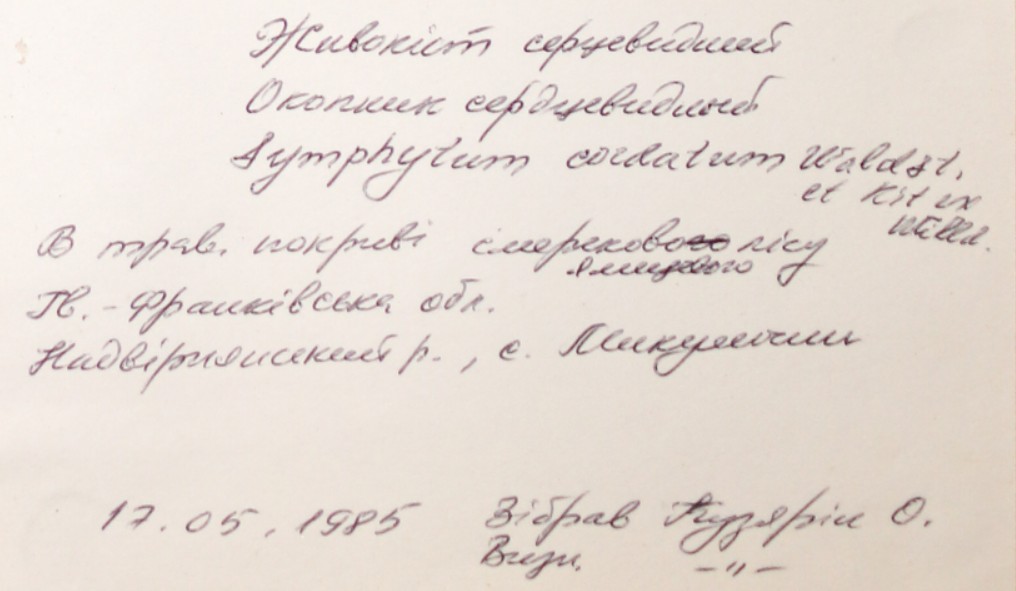 Живокіст серцевидний
Окопник сердцевидный
Symphytum cordatum Waldst.
et Kit ex
Willd.
В трав. покриві смерекового лісу
ялицевого
Ів.-Франківська обл.
Надвірнянський р., с. Микуличин
17.05.1985 Зібрав Кузярін О.
Визн. -"-